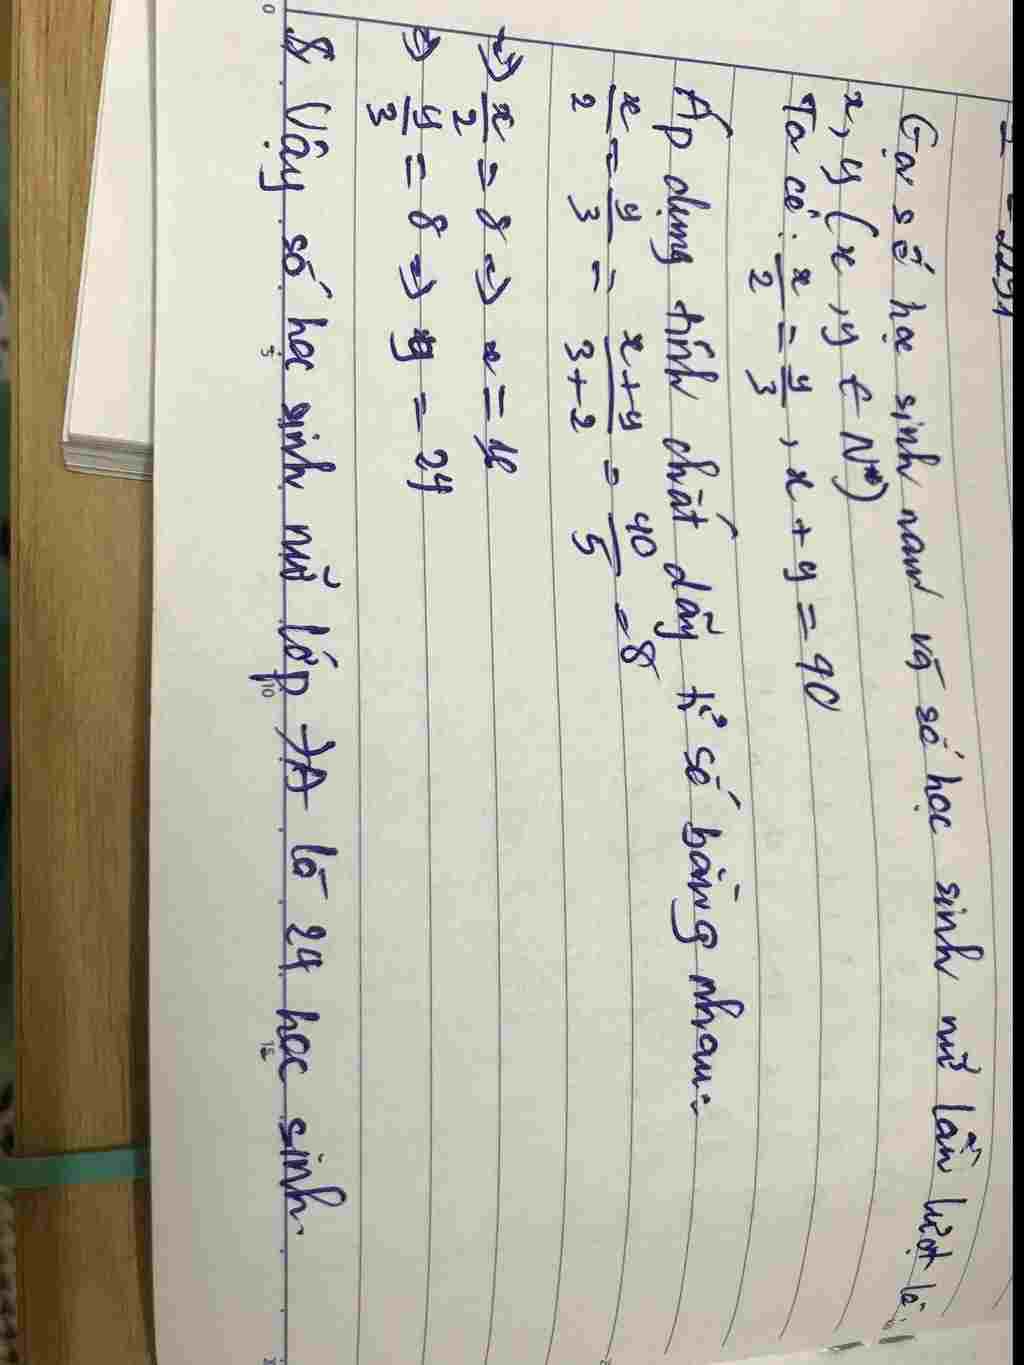 Gọi số học sinh nam và số học sinh nữ lần lượt là:
x, y (x, y ∈ N*)
Ta có: x/2 = y/3, x + y = 40
Áp dụng tính chất dãy tỉ số bằng nhau:
x/2 = y/3 = x+y/3+2 = 40/5 = 8
=> x/2 = 8 => x = 16
=> y/3 = 8 => y = 24
Vậy số học sinh nữ lớp 7A là 24 học sinh.
0
5
10
15